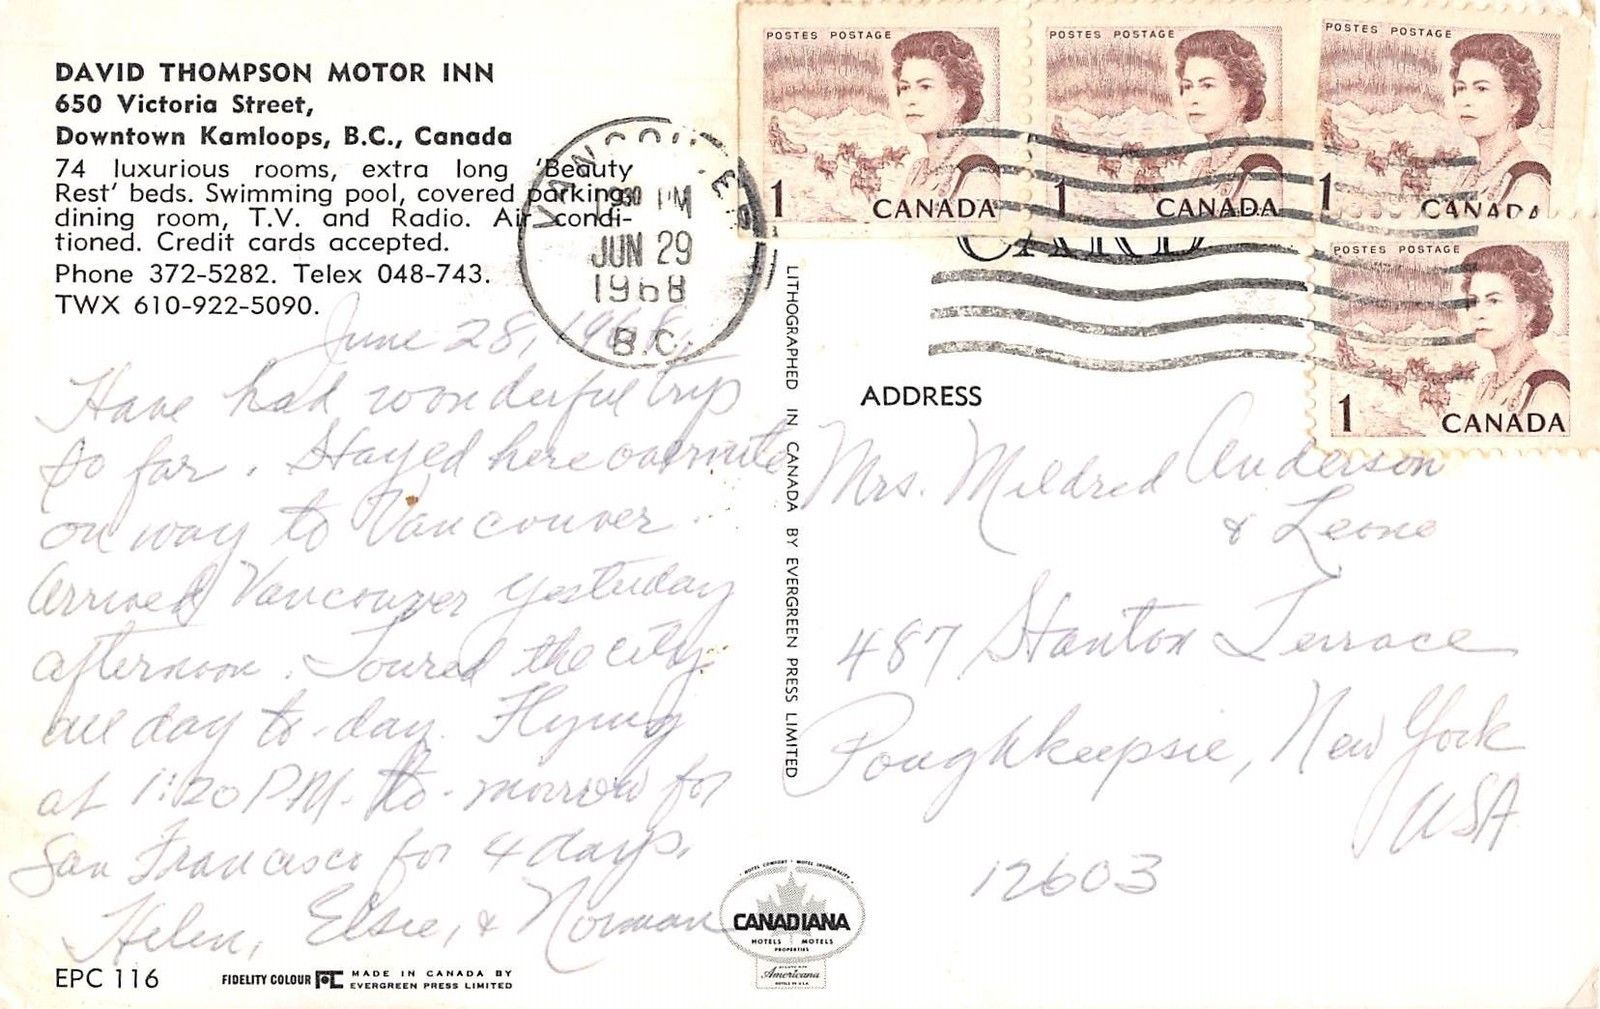 DAVID THOMPSON MOTOR INN
650 Victoria Street,
Downtown Kamloops, B.C., Canada
74 luxurious rooms, extra long 'Beauty
Rest' beds. Swimming pool, covered parking,
dining room, T.V. and Radio. Air condi-
tioned. Credit cards accepted.
Phone 372-5282. Telex 048-743.
TWX 610-922-5090.
VANCOUVER
PM
JUN 29
1968
B.C.
POSTES POSTAGE
1 CANADA
POSTES POSTAGE
1 CANADA
POSTES POSTAGE
1 CANADA
POSTES POSTAGE
1 CANADA
CARD
June 28, 1968
Have had wonderful trip
so far. Stayed here overnite
on way to Vancouver.
Arrived Vancouver yesterday
afternoon. Toured the city
all day to-day. Flying
at 1:20 P.M. to-morrow for
San Francisco for 4 days.
Helen, Elsie, & Norman
LITHOGRAPHED IN CANADA BY EVERGREEN PRESS LIMITED
ADDRESS
Mrs. Mildred Anderson
& Leone
487 Stanton Terrace
Poughkeepsie, New York
USA
12603
HOTEL COMFORT • MOTEL INFORMALITY
CANADIANA
HOTELS MOTELS
PROPERTIES
Americana
HOTELS IN U.S.A.
EPC 116
FIDELITY COLOUR
MADE IN CANADA BY
EVERGREEN PRESS LIMITED